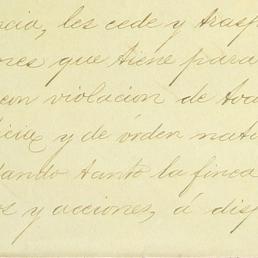 ncia, les cede y trasp
ores que tiene para
con violacion de toda
icia y de órden natu
dando tanto la finca
os y acciones, á disp